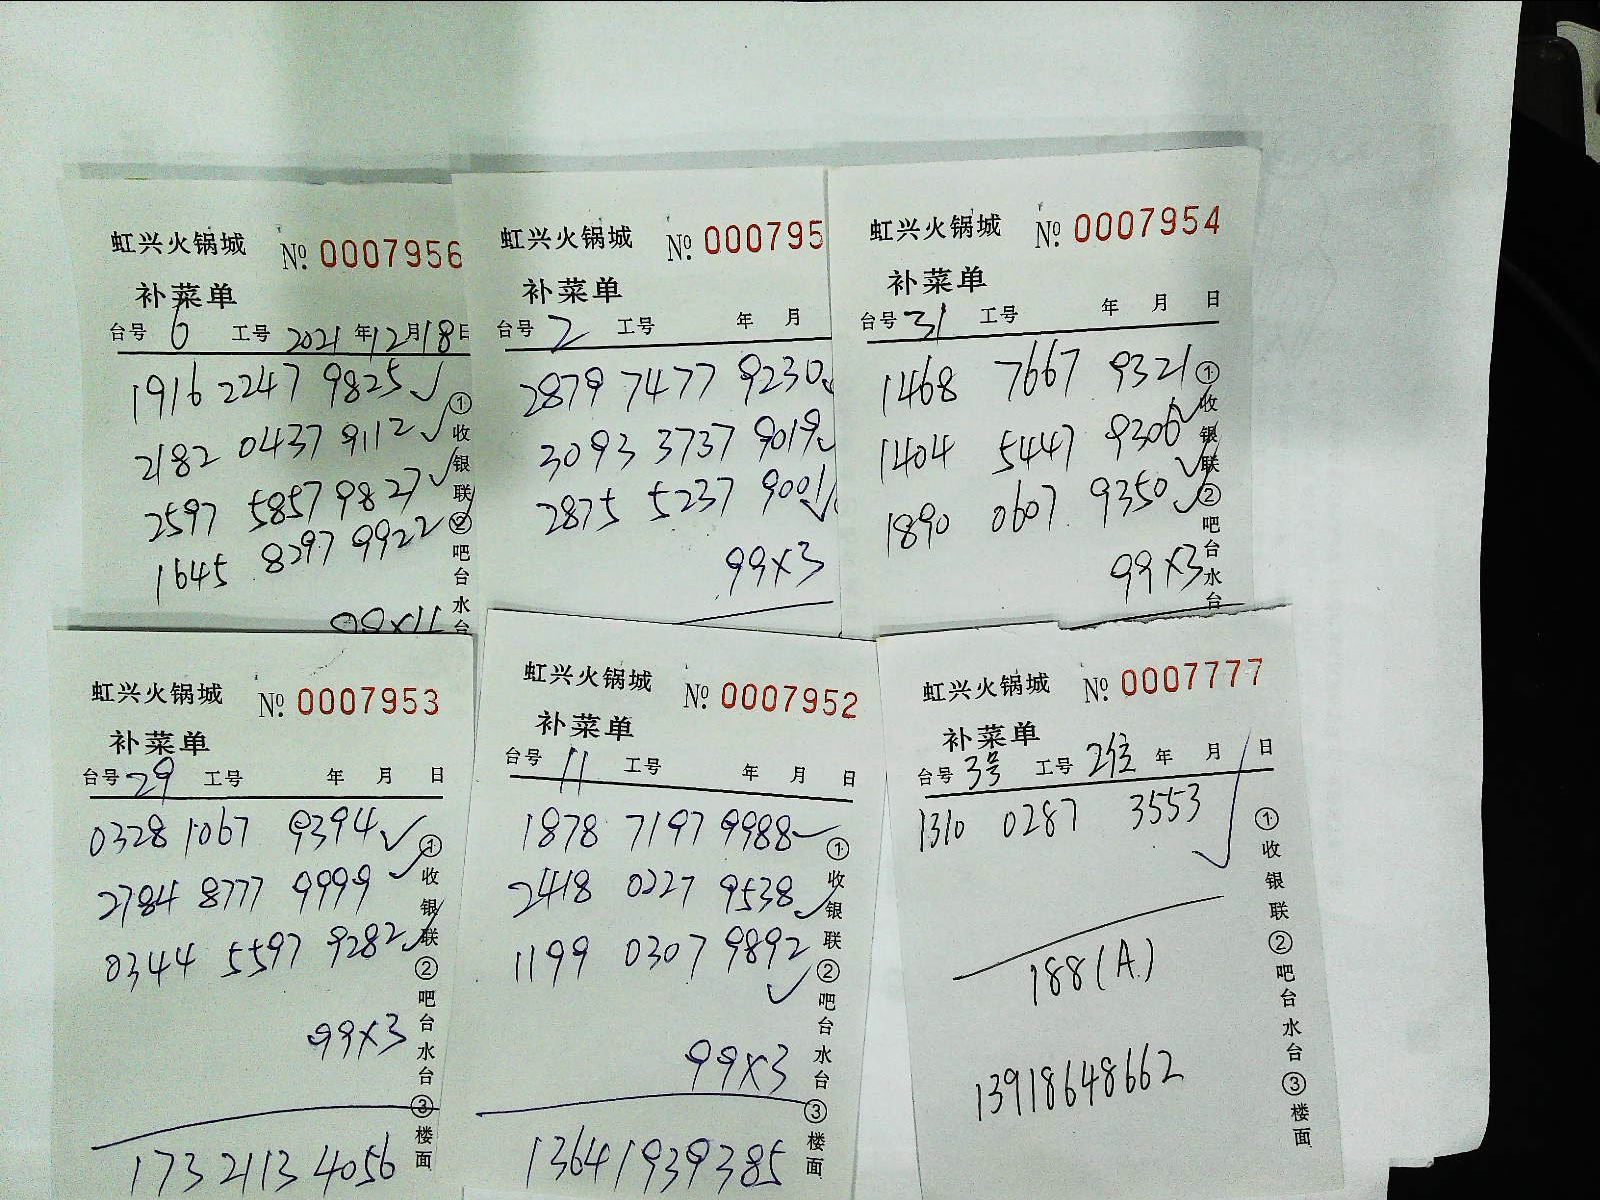 虹兴火锅城 No. 0007956
补菜单
台号 6 工号 2021 年 12 月 18 日
1916 2247 9825 ✓
2182 0437 9112 ✓
2597 5857 9827 ✓
1645 8297 9922 ✓
99×11
①收银联②吧台水台
虹兴火锅城 No. 000795
补菜单
台号 2 工号 年 月
2879 7477 9230 ✓
3093 3737 9019 ✓
2875 5237 9001 ✓
99×3
虹兴火锅城 No. 0007954
补菜单
台号 31 工号 年 月 日
1468 7667 9321 ✓
1404 5447 9306 ✓
1890 0607 9350 ✓
99×3
①收银联②吧台水台
虹兴火锅城 No. 0007953
补菜单
台号 29 工号 年 月 日
0328 1067 9394 ✓
2784 8777 9999 ✓
0344 5597 9282 ✓
99×3
173 2113 4056
①收银联②吧台水台③楼面
虹兴火锅城 No. 0007952
补菜单
台号 11 工号 年 月 日
1878 7197 9988 ✓
2418 0227 9538 ✓
1199 0307 9892 ✓
99×3
13641939385
①收银联②吧台水台③楼面
虹兴火锅城 No. 0007777
补菜单
台号 3号 工号 2位 年 月 日
1310 0287 3553 ✓
188(A)
13918648662
①收银联②吧台水台③楼面